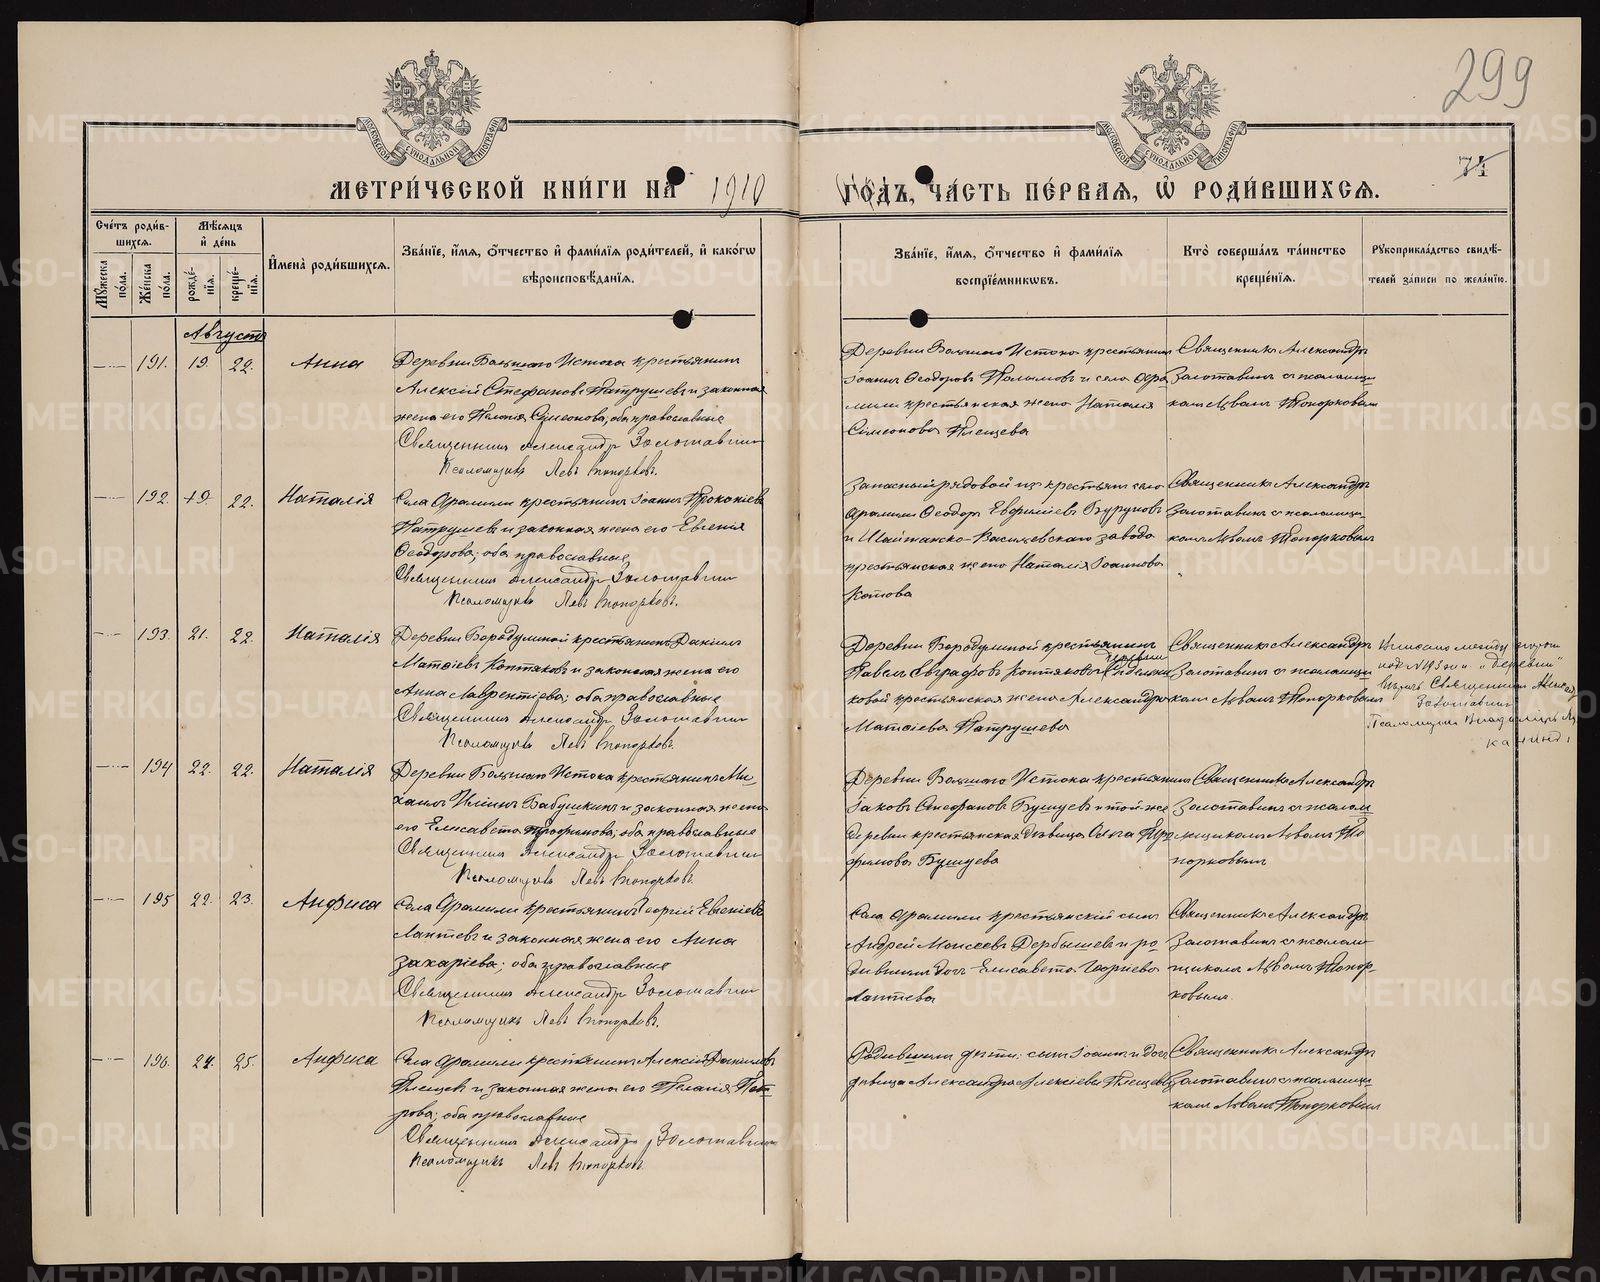 299
74
МЕТРИ́ЧЕСКОЙ КНИ́ГИ НА 1910 ГОДЪ, ЧА́СТЬ ПЕ́РВАЯ, Ѡ РОДИ́ВШИХСЯ.
Сче́тъ роди́вшихся.
Му́жеска по́ла.
Же́нска по́ла.
Мѣ́сяцъ и де́нь
рожде́нія.
креще́нія.
Имена̀ роди́вшихся.
Зва́ніе, и́мя, о́тчество и фами́лія роди́телей, и како́гѡ вѣроисповѣ́данія.
Зва́ніе, и́мя, о́тчество и фами́лія воспріе́мникѡвъ.
Кто̀ соверша́лъ та́инство креще́нія.
Рукоприкла́дство свидѣ́телей за́писи по жела́нію.
Августъ
191. 19. 22. Анна
Деревни Большого Истока крестьянинъ
Алексій Стефановъ Патрушевъ и законная
жена его Пелагія Сумеонова; оба православные
Священникъ Александръ Золотавинъ
Псаломщикъ Левъ Топорковъ.
Деревни Большого Истока крестьянинъ
Іоаннъ Ѳеодоровъ и села Ара
мили крестьянская жена Наталія
Симеонова Плещева
Священникъ Александръ
Золотавинъ съ псаломщи
комъ Львомъ Топорковымъ
192. 19. 22. Наталія
Села Арамили крестьянинъ Іоаннъ Прокопіевъ
Патрушевъ и законная жена его Евгенія
Ѳеодорова; оба православные
Священникъ Александръ Золотавинъ
Псаломщикъ Левъ Топорковъ.
Запасный рядовой изъ крестьянъ села
Арамили Ѳеодоръ Евфиміевъ Бурухинъ
и Шайтанско-Васильевскаго завода
крестьянская жена Наталія Іоаннова
Котова
Священникъ Александръ
Золотавинъ съ псаломщи
комъ Львомъ Топорковымъ
193. 21. 22. Наталія
Деревни Бородулиной крестьянинъ Даніилъ
Матѳіевъ Коптяковъ и законная жена его
Анна Лаврентіева; оба православные
Священникъ Александръ Золотавинъ
Псаломщикъ Левъ Топорковъ.
Деревни Бородулиной крестьянинъ
Павелъ Евграфовъ Коптяковъ и деревни
ковой крестьянская жена Александра
Матѳіева Патрушева
Священникъ Александръ
Золотавинъ съ псаломщи
комъ Львомъ Топорковымъ
Написано между строкъ
подъ № 193 "деревни"
вѣрно Священникъ Александръ
Золотавинъ
Псаломщикъ Владиміръ
194 22. 22. Наталія
Деревни Большого Истока крестьянинъ Ми-
хаилъ Иліинъ Бабушкинъ и законная жена
его Елисавета Трофимова; оба православные
Священникъ Александръ Золотавинъ
Псаломщикъ Левъ Топорковъ.
Деревни Большого Истока крестьянинъ
Іаковъ Стефановъ Бушуевъ и той же
деревни крестьянская дѣвица Ольга Тро
фимова Бушуева
Священникъ Александръ
Золотавинъ съ псалом
щикомъ Львомъ То
порковымъ
195 22. 23. Анфиса
Села Арамили крестьянинъ Георгій Евгеніевъ
Лаптевъ и законная жена его Анна
Захаріева; оба православные
Священникъ Александръ Золотавинъ
Псаломщикъ Левъ Топорковъ.
Села Арамили крестьянскій сынъ
Андрей Моисеевъ Дербышевъ и ро
дившихъ дочь Елисавета Георгіева
Лаптева
Священникъ Александръ
Золотавинъ съ псалом
щикомъ Львомъ Топор-
ковымъ
196. 24. 25. Анфиса
Села Арамили крестьянинъ Алексій Даниловъ
Плещевъ и законная жена его Пелагія Пет
рова; оба православные
Священникъ Александръ Золотавинъ
Псаломщикъ Левъ Топорковъ
Родившихъ дѣти: сынъ Іоаннъ и дочь
дѣвица Александра Алексіевы Плещевы
Священникъ Александръ
Золотавинъ съ псаломщи
комъ Львомъ Топорковымъ
METRIKI.GASO-URAL.RU